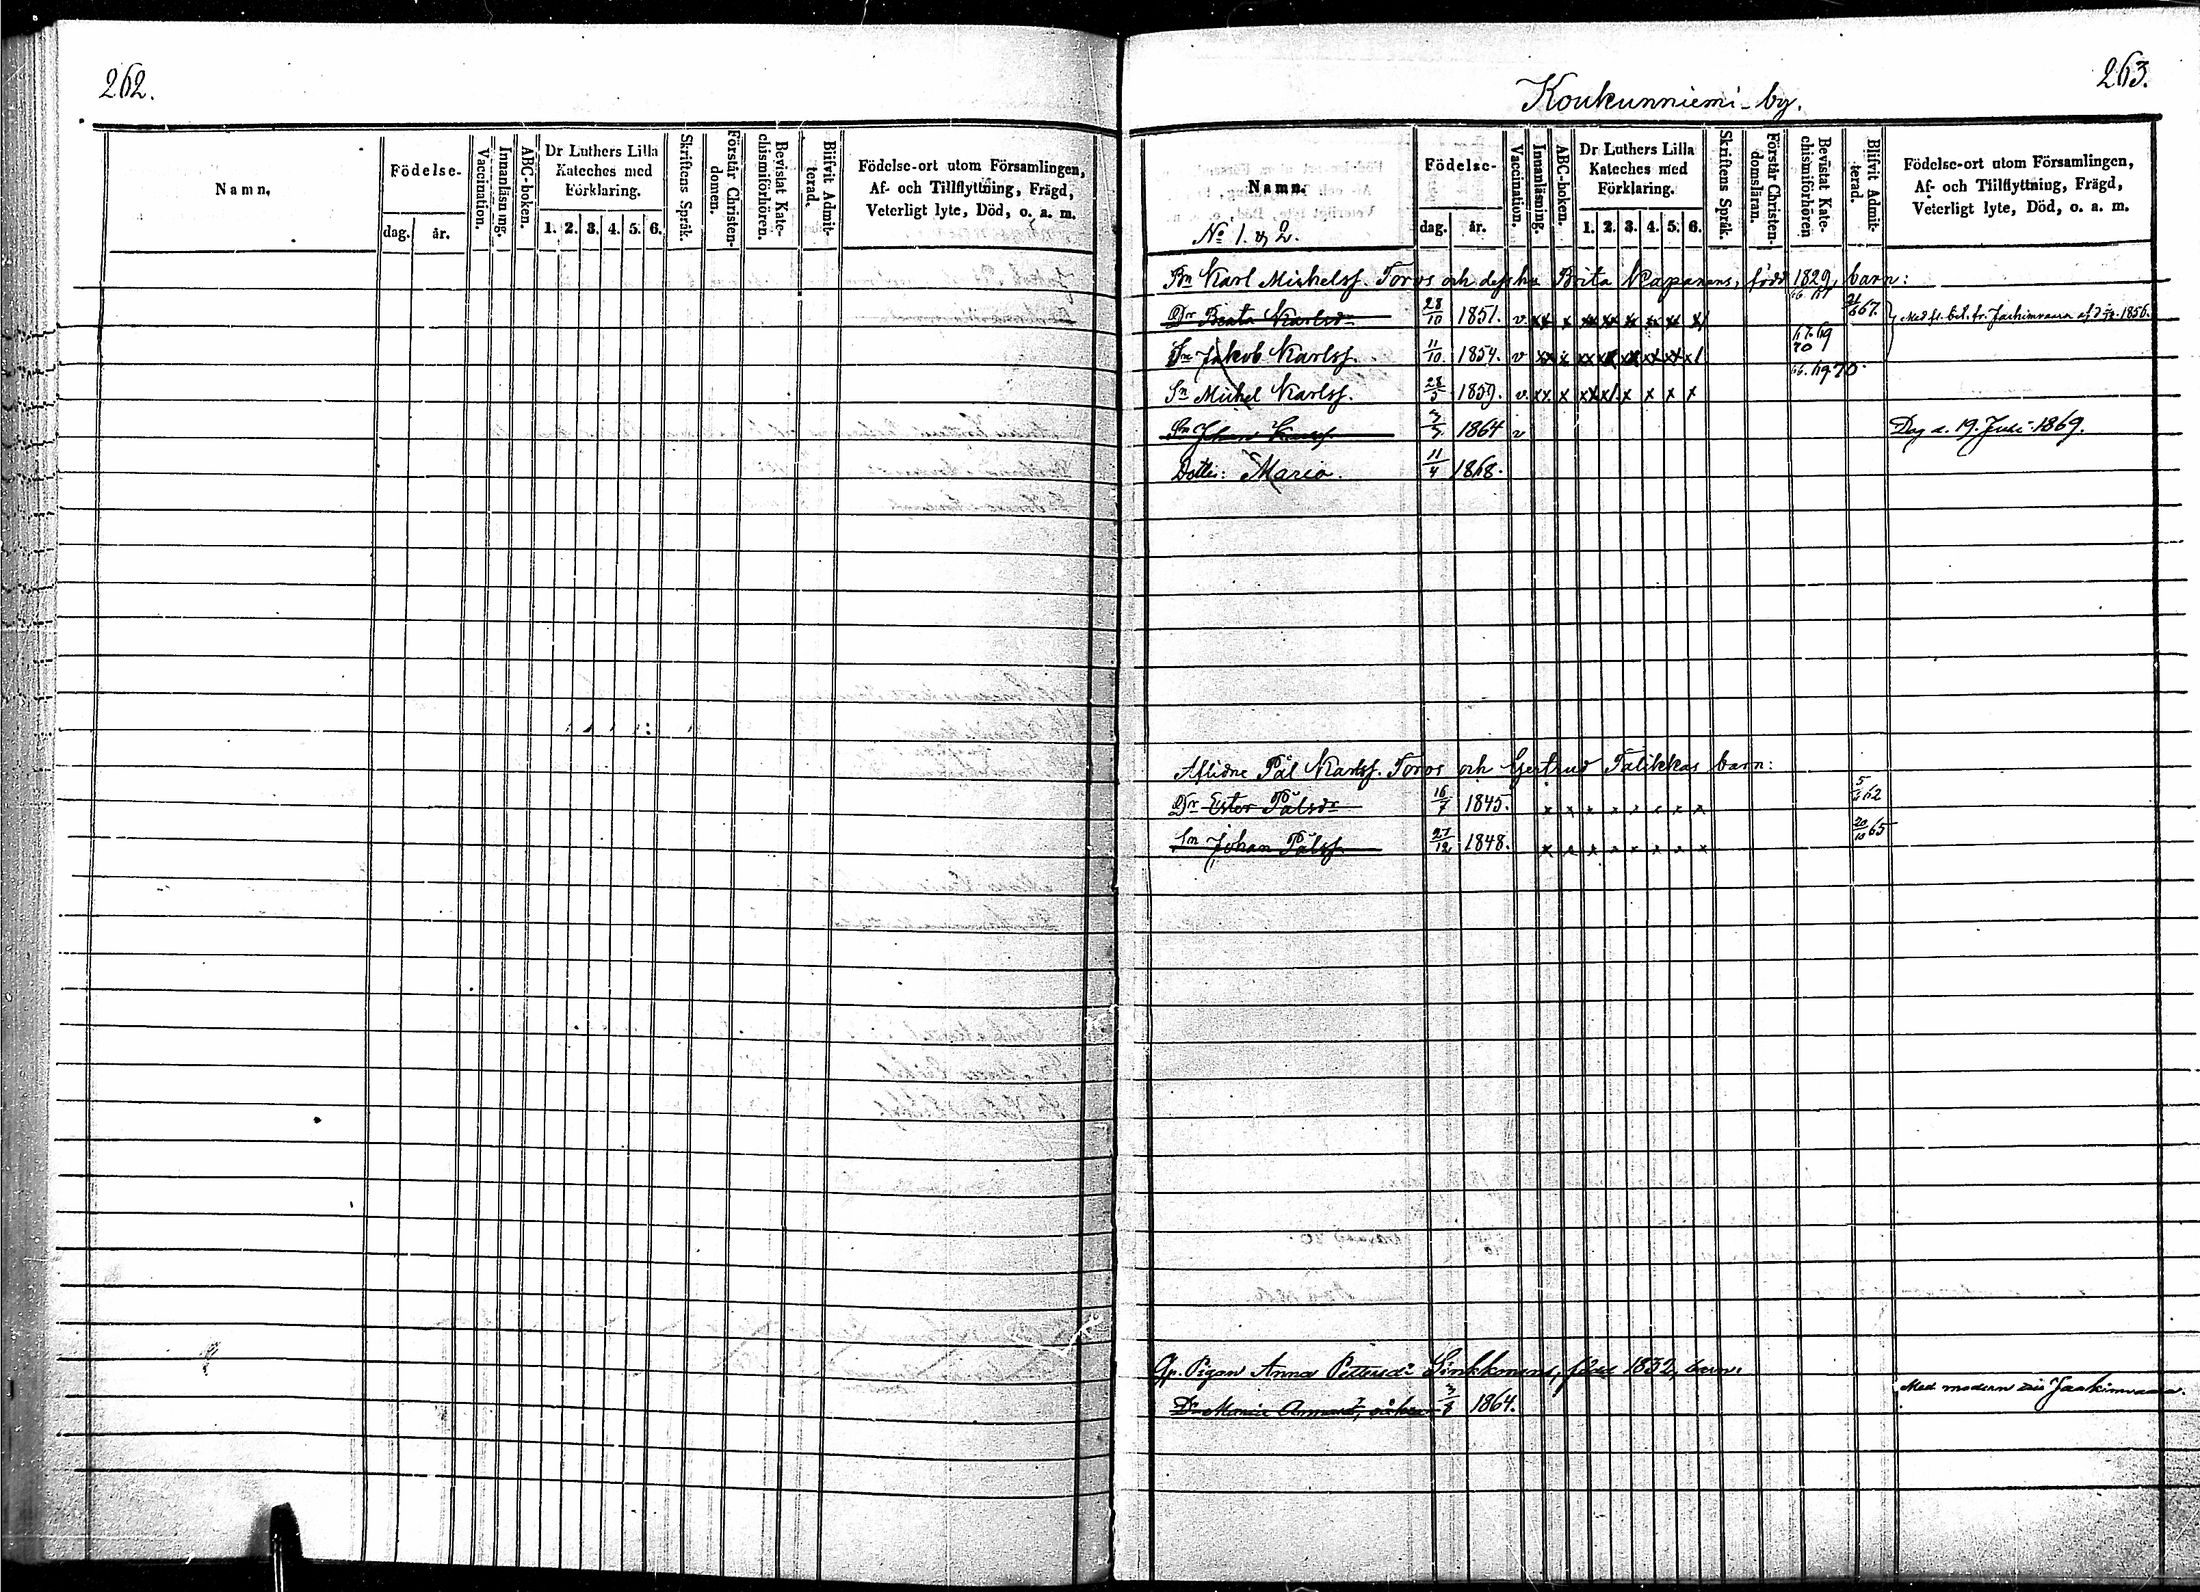 262.
Namn.
Födelse-
dag. år.
Vaccination.
Innanläsning.
ABC-boken.
Dr Luthers Lilla
Kateches med
Förklaring.
1. 2. 3. 4. 5. 6.
Skriftens Språk.
Förstår Christen-
domen.
Bevistat Kate-
chismiförhören.
Blifvit Admit-
terad.
Födelse-ort utom Församlingen,
Af- och Tillflyttning, Frägd,
Veterligt lyte, Död, o. a. m.
263.
Koukunniemi-by.
Namn.
No 1. & 2.
Födelse-
dag. år.
Vaccination.
Innanläsning.
ABC-boken.
Dr Luthers Lilla
Kateches med
Förklaring.
1. 2. 3. 4. 5. 6.
Skriftens Språk.
Förstår Christen-
domsläran.
Bevistat Kate-
chismiförhören
Blifvit Admit-
terad.
Födelse-ort utom Församlingen,
Af- och Tillflyttning, Frägd,
Veterligt lyte, Död, o. a. m.
Bn Karl Michelsf. Toros och dess hu Brita Kapanens, född 1829, barn:
Dr Beata Karlsdr 28/10 1851. v xx x xx xx x xx x x/ 66. 67 67. Med fl. bet. fr. Jaakimvaara af d 1856.
Sn Jakob Karlsf. 11/10 1854. v xx x xx xx xx xx xx x/ 67. 69 70
Sn Michel Karlsf. 28/5 1859. v. xx x xx x/. x x x x 66. 69 70.
Sn Johan Karlsf. 3/7 1864 v Dog d. 19. Juli 1869.
Dotter: Maria. 11/4 1868.
Aflidne Pål Karlsf. Toros och Gertrud Tålikkas barn:
Dr Ester Pålsdr 16/7 1845. x x x x x x x x 5/ 62
Sn Johan Pålsf. 27/12 1848. x x x x x x x x 20/10 65
Pigan Anna Pettersdr Sinkkonens, född 1832, barn:
Dr Maria 1864. Med modern Jaakimvaara.